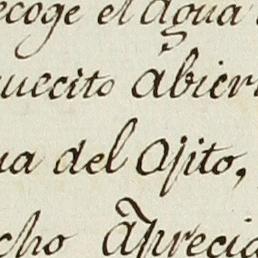 ecoge el agua
uecito abier
ua del Ojito,
cho apreci